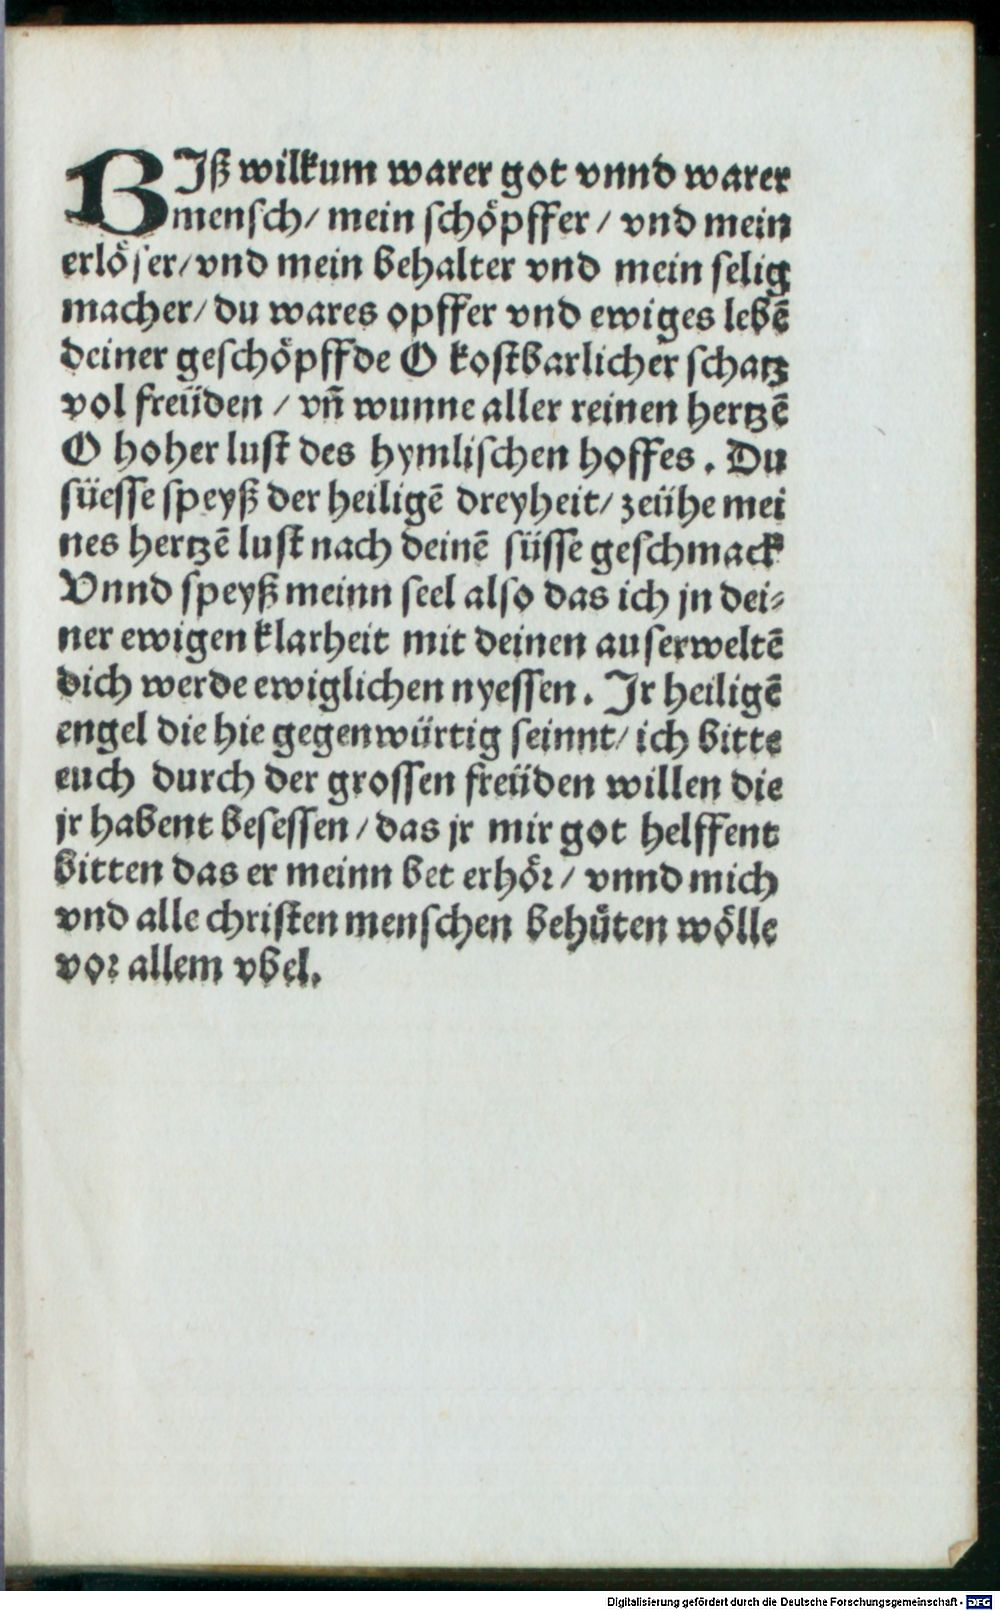 BJß wilkum warer got vnnd warer
mensch/ mein schöpffer / vnd mein
erlöser/vnd mein behalter vnd mein selig
macher/ du wares opffer vnd ewiges lebē
deiner geschöpffde O kostbarlicher schatz
vol freüden / vn̄ wunne aller reinen hertzē
O hoher lust des hymlischen hoffes. Du
süesse speyß der heiligē dreyheit/ zeühe mei
nes hertzē lust nach deinē süsse geschmack
Vnnd speyß meinn seel also das ich jn dei⸗
ner ewigen klarheit mit deinen auserweltē
dich werde ewiglichen nyessen. Jr heiligē
engel die hie gegenwürtig seinnt/ ich bitte
euch durch der grossen freüden willen die
jr habent besessen/das jr mir got helffent
bitten das er meinn bet erhör/ vnnd mich
vnd alle christen menschen behüten wölle
vor allem vbel.
Digitalisierung gefördert durch die Deutsche Forschungsgemeinschaft - DFG